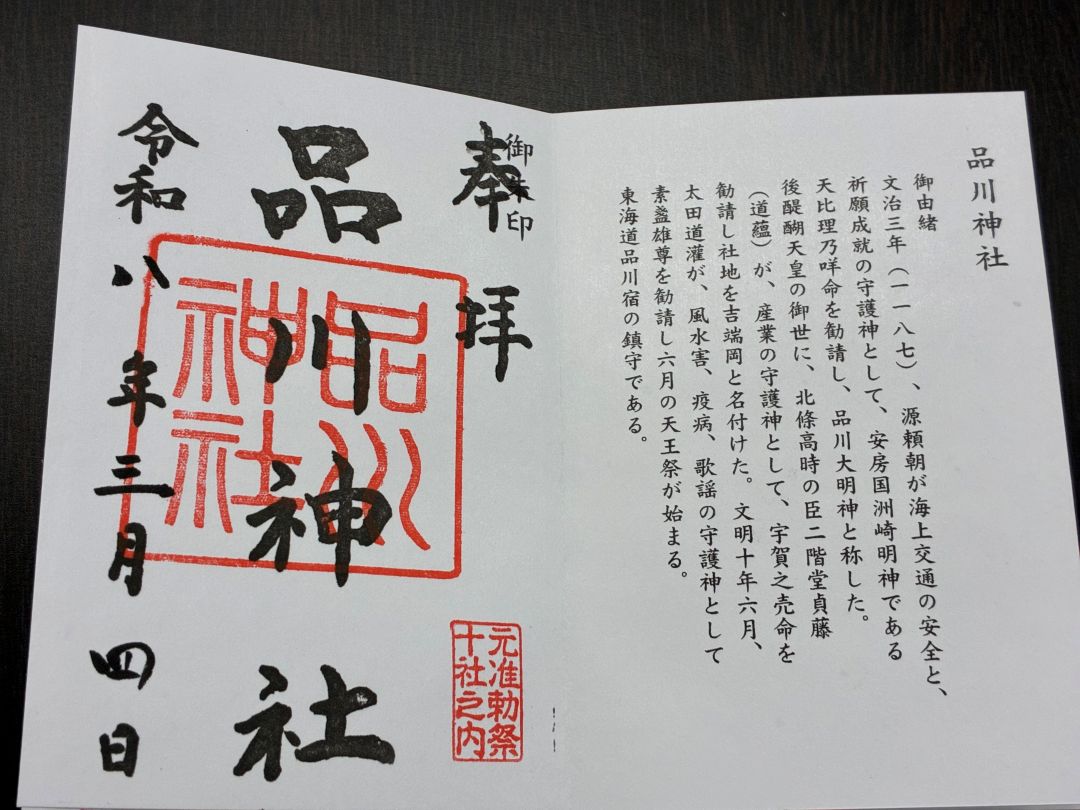 品川神社
御由緒
文治三年（一一八七）、源頼朝が海上交通の安全と、
祈願成就の守護神として、安房国洲崎明神である
天比理乃咩命を勧請し、品川大明神と称した。
後醍醐天皇の御世に、北條高時の臣二階堂貞藤
（道蘊）が、産業の守護神として、宇賀之売命を
勧請し社地を吉端岡と名付けた。文明十年六月、
太田道灌が、風水害、疫病、歌謡の守護神として
素盞雄尊を勧請し六月の天王祭が始まる。
東海道品川宿の鎮守である。
御朱印
奉拝
元准勅祭
十社之内
品川神社
品川
神社
令和八年三月四日